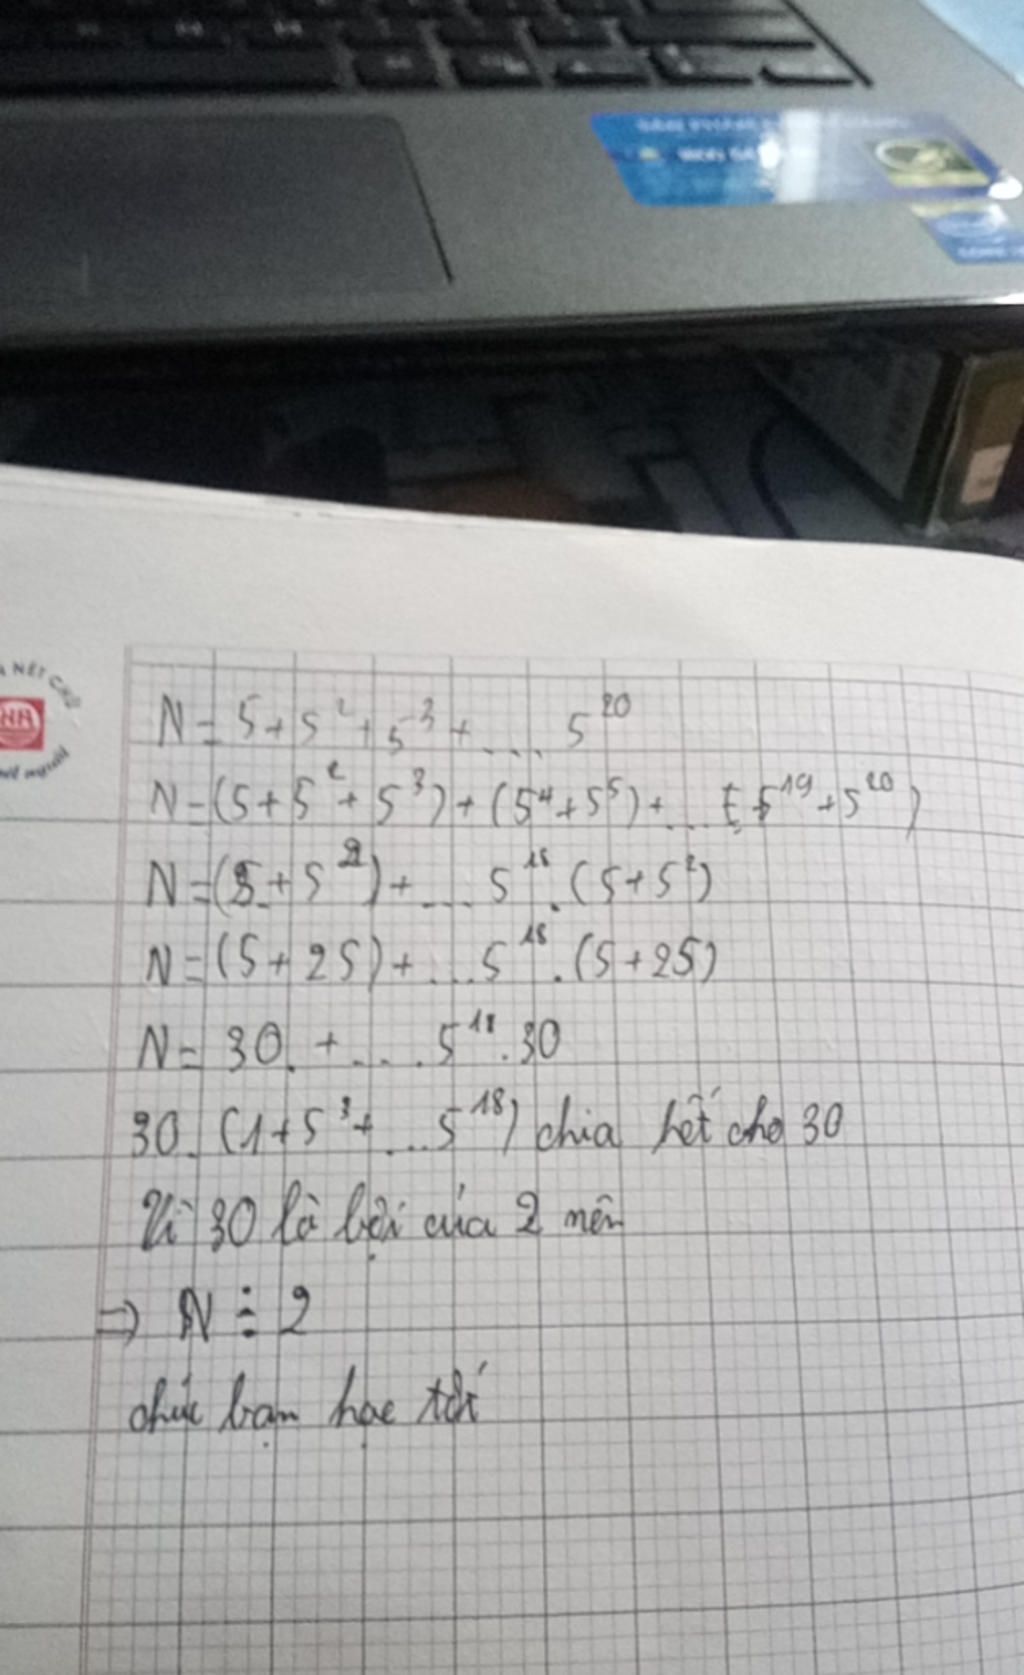 NÉT CHỮ
N = 5 + 5² + 5³ + ... 5²⁰
N = (5 + 5² + 5³) + (5⁴ + 5⁵) + ... (5¹⁹ + 5²⁰)
N = (5 + 5²) + ... 5¹⁸ . (5 + 5²)
N = (5 + 25) + ... 5¹⁸ . (5 + 25)
N = 30 . + ... . 5¹⁸ . 30
30 . (1 + 5³ + ... 5¹⁸) chia hết cho 30
Vì 30 là bội của 2 nên
⇒ N ⋮ 2
chúc bạn học tốt